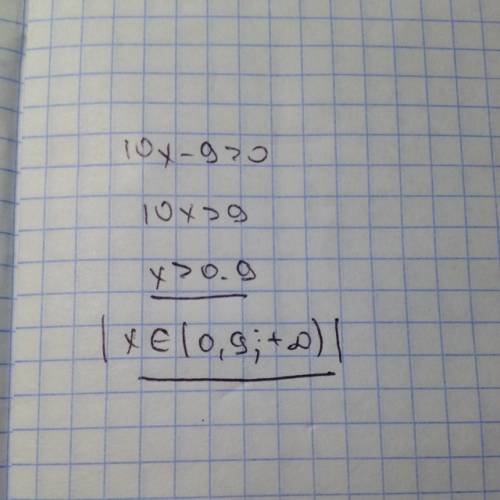 10x-9>0
10x>9
x>0.9
|x∈(0,9;+∞)|